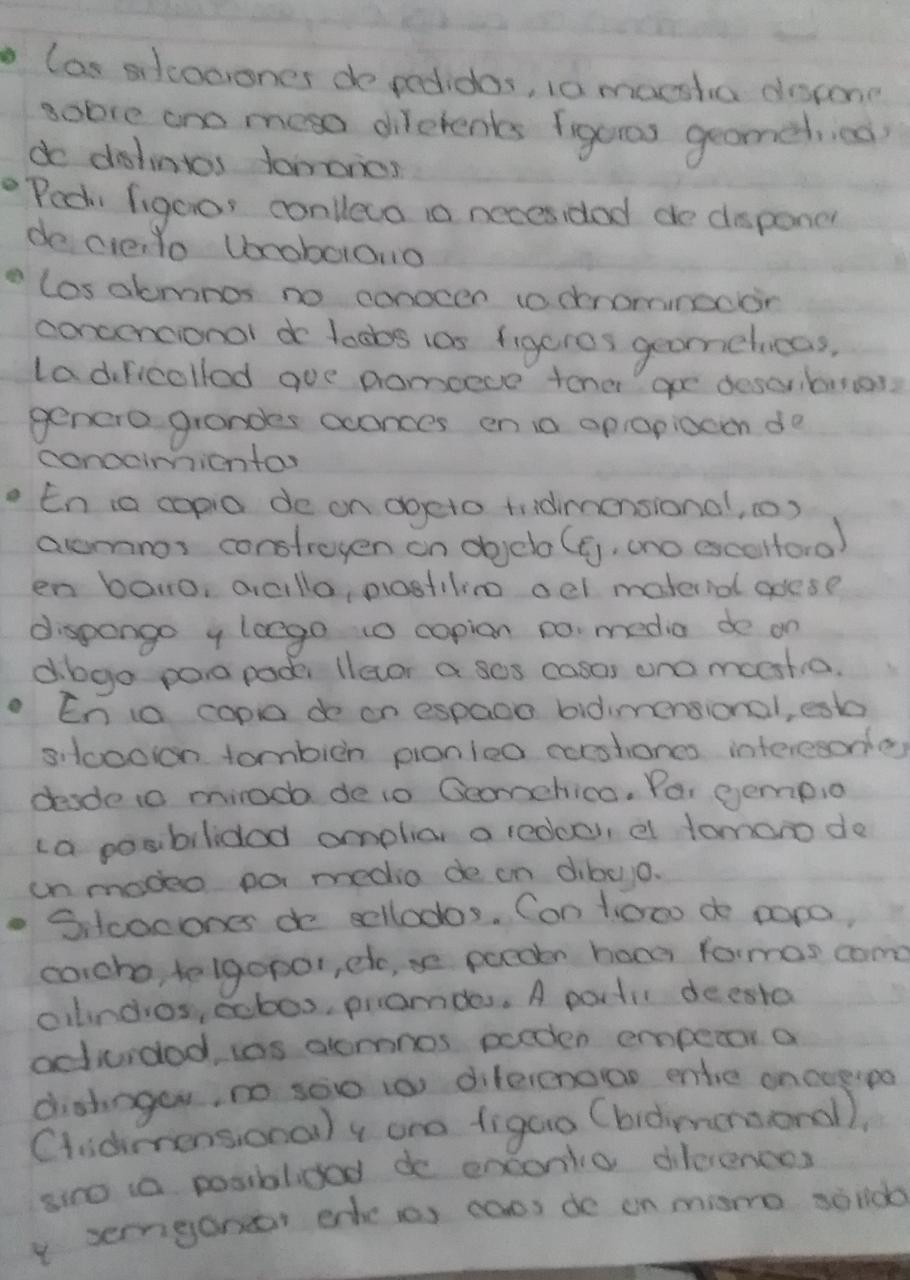 • Las situaciones de pedidos, la maestra dispone
sobre una mesa diferentes figuras geometricas
de distintos tamaños
• Pedir figuras conlleva la necesidad de disponer
de cierto Vocabulario
• Los alumnos no conocen la denominación
convencional de todas las figuras geometricas,
La dificultad que promueve tener que describirlas
genera grandes avances en la apropiacion de
conocimientos
• En la copia de un objeto tridimensional, los
alumnos construyen un objeto (Ej. una escultura)
en barro, arcilla, plastilina o el material que se
disponga y luego lo copian por medio de un
dibujo para poder llevar a sus casas una muestra.
• En la copia de un espacio bidimensional, esta
situacion tambien plantea cuestiones interesantes
desde la mirada de la Geometrica. Por ejemplo
La posibilidad ampliar o reducir el tamaño de
un modeo por medio de un dibujo.
• Situaciones de sellados. Con trozos de papa,
corcho, telgopor, etc, se pueden hacer formas como
cilindros, cubos, piramides. A partir de esta
actividad, los alumnos pueden empezar a
distinguir, no solo las diferencias entre un cuerpo
(tridimensional) y una figura (bidimensional),
sino la posiblidad de encontrar diferencias
y semejanzas entre las caras de un mismo sólido